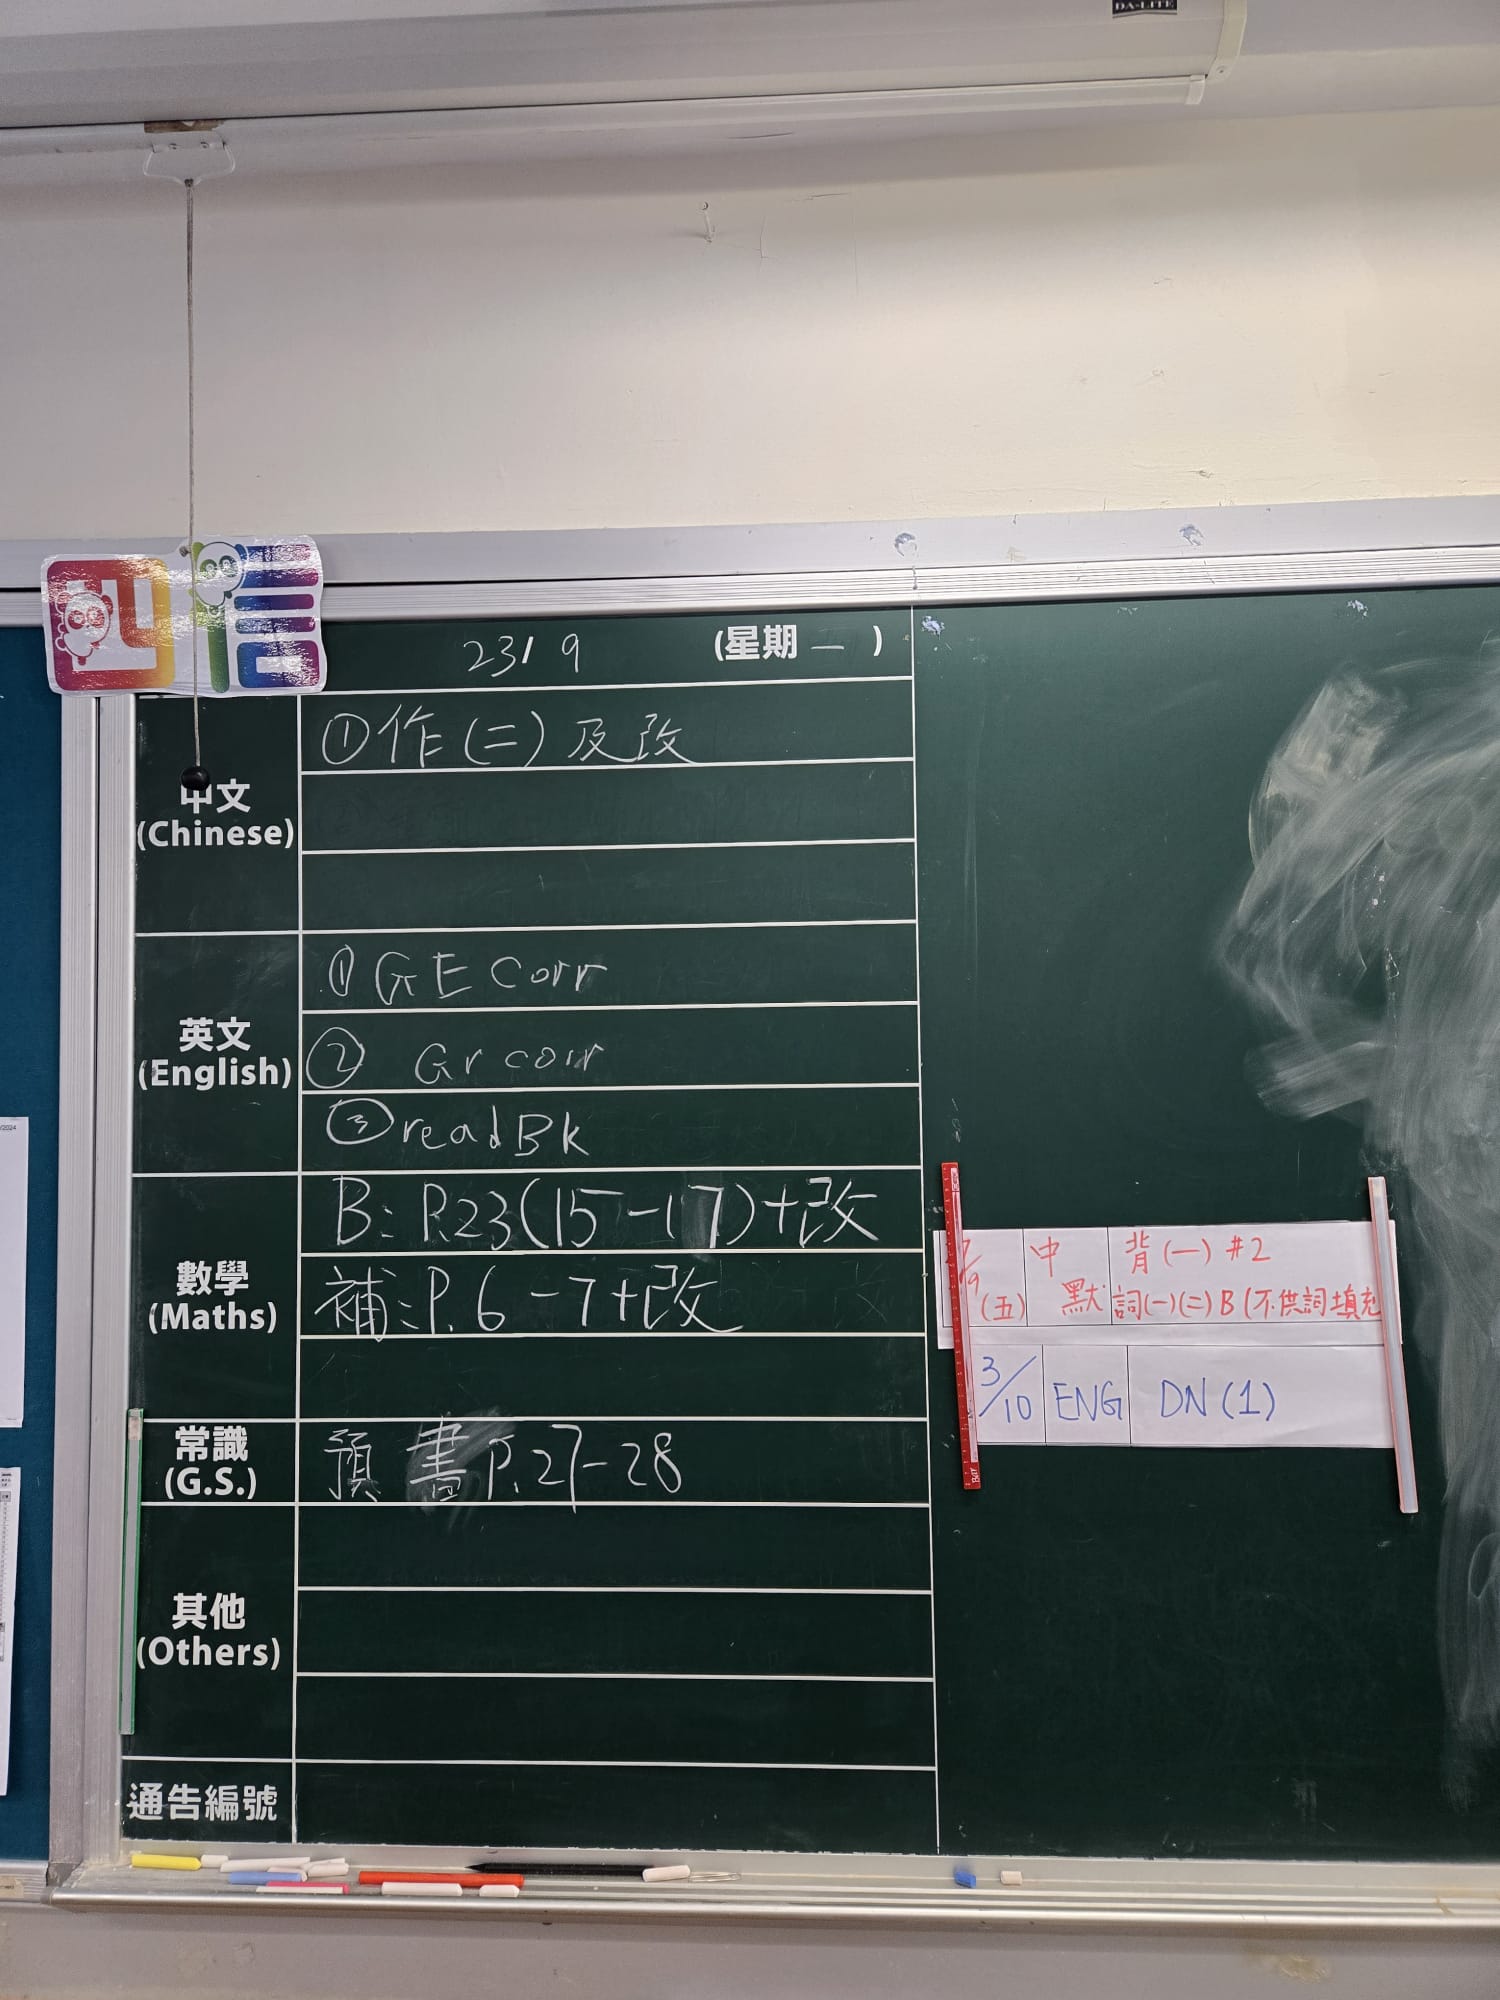 DA-LITE
四信
23/9 (星期一)
中文
(Chinese)
①作(二)及改
英文
(English)
①GE Corr
② Gr corr
③readBk
數學
(Maths)
B:P.23(15-17)+改
補:P.6-7+改
常識
(G.S.)
預 書P.27-28
其他
(Others)
通告編號
/9 (五) 中默 背(一)#2
詞(一)(二)B(不供詞填充
3/10 ENG DN(1)
/2024